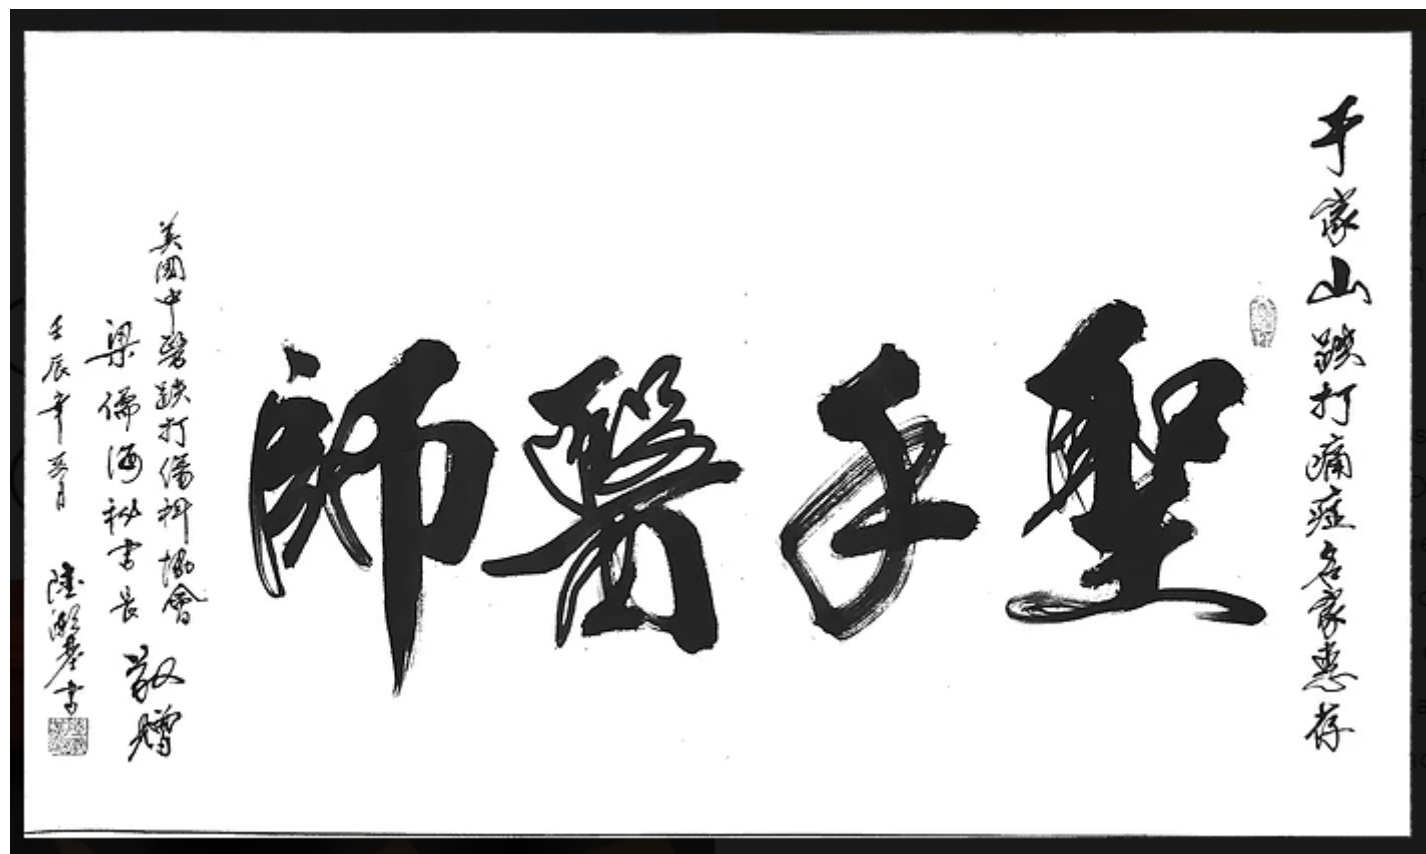 于家山跌打痛症名家惠存
聖手醫師
美國中醫跌打傷科協會
梁儒海秘書長 敬贈
壬辰年 月 陸 基書